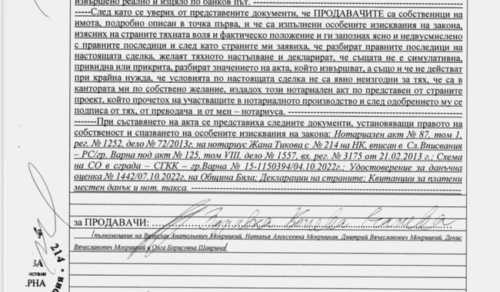 извършено реално и изцяло по банков път.
-----След като се уверих от представените документи, че ПРОДАВАЧИТЕ са собственици на
имота, подробно описан в точка първа, и че са изпълнени особените изисквания на закона,
изясних на страните тяхната воля и фактическо положение и ги запознах ясно и недвусмислено
с правните последици и след като страните ми заявиха, че разбират правните последици на
настоящата сделка, желаят тяхното настъпване и декларират, че същата не е симулативна,
привидна или прикрита, разбират значението на акта, който извършват, а също и че не действат
при крайна нужда, че условията по настоящата сделка не са явно неизгодни за тях, че са в
кантората ми по собствено желание, издадох този нотариален акт по представен от страните
проект, който прочетох на участващите в нотариалното производство и след одобрението му се
подписа от тях, от преводача и от мен – нотариуса.
-----При съставянето на акта се представиха следните документи, установяващи правото на
собственост и спазването на особените изисквания на закона: Нотариален акт № 87, том 1,
рег. № 1252, дело № 72/2013г. на нотариус Жана Тикова с № 214 на НК, вписан в Сл.Вписвания
– РС/гр. Варна под акт № 125, том VIII, дело № 1557, вх. рег. № 3175 от 21.02.2013 г.; Схема
на СО в сграда – СГКК – гр.Варна № 15-1150394/04.10.2022г.; Удостоверение за данъчна
оценка № 1442/07.10.2022г. на Община Бяла; Декларации на страните; Квитанции за платени
местен данък и нот. такса.
за ПРОДАВАЧИ:
(пълномощник на Вячеслав Анатольевич Мокрицкий, Наталья Алексеевна Мокрицкая, Дмитрий Вячеславович Мокрицкий, Денис
Вячеславович Мокрицкий и Олга Борисовна Шаврина)
214
ЗА
РНА